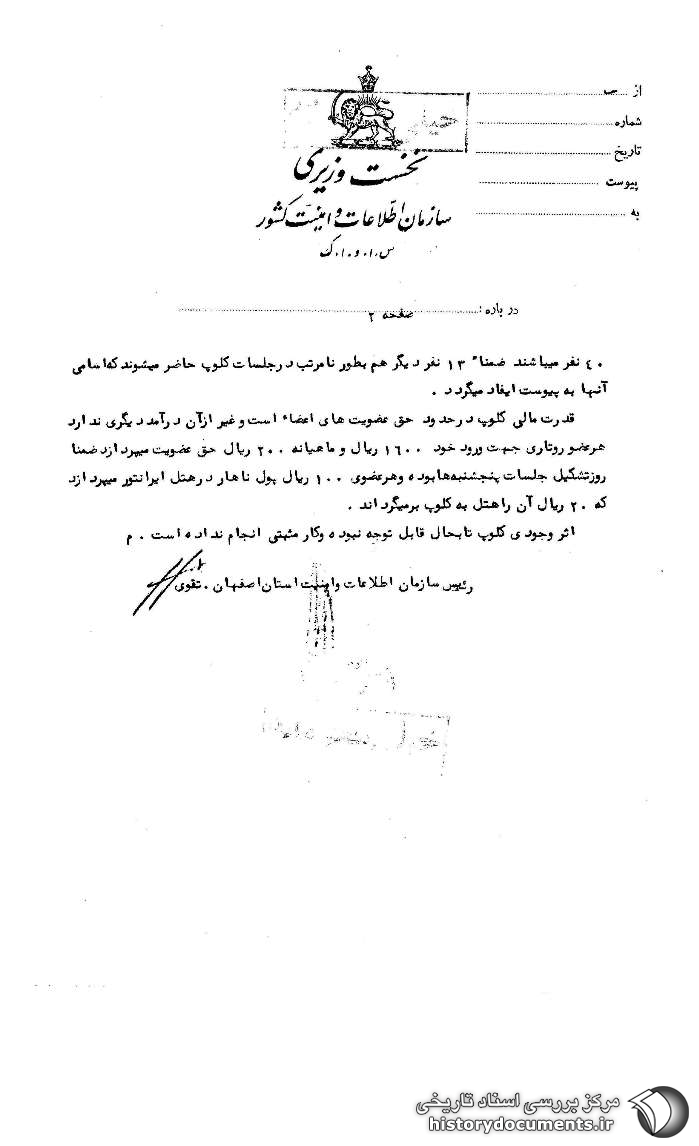 از
شماره
تاریخ
پیوست
به
خیلی
نخست وزیری
سازمان اطلاعات و امنیت کشور
س.ا.و.ا.ک
درباره : صفحه ۲
۴۰ نفر میباشند ضمناً ۱۳ نفر دیگر هم بطور نامرتب درجلسات کلوپ حاضر میشوند که اسامی
آنها به پیوست ایفاد میگردد .
قدرت مالی کلوپ درحدود حق عضویت های اعضاء است و غیر از آن درآمد دیگری ندارد
هرعضو روتاری جهت ورود خود ۱۶۰۰ ریال و ماهیانه ۲۰۰ ریال حق عضویت میپردازد ضمنا
روزتشکیل جلسات پنجشنبه‌ها بوده وهرعضوی ۱۰۰ ریال پول ناهار درهتل ایرانتور میپردازد
که ۲۰ ریال آن را هتل به کلوپ برمیگرداند .
اثر وجودی کلوپ تابحال قابل توجه نبوده وکار مثبتی انجام نداده است . م
رئیس سازمان اطلاعات وامنیت استان اصفهان . تقوی
مرکز بررسی اسناد تاریخی
historydocuments.ir